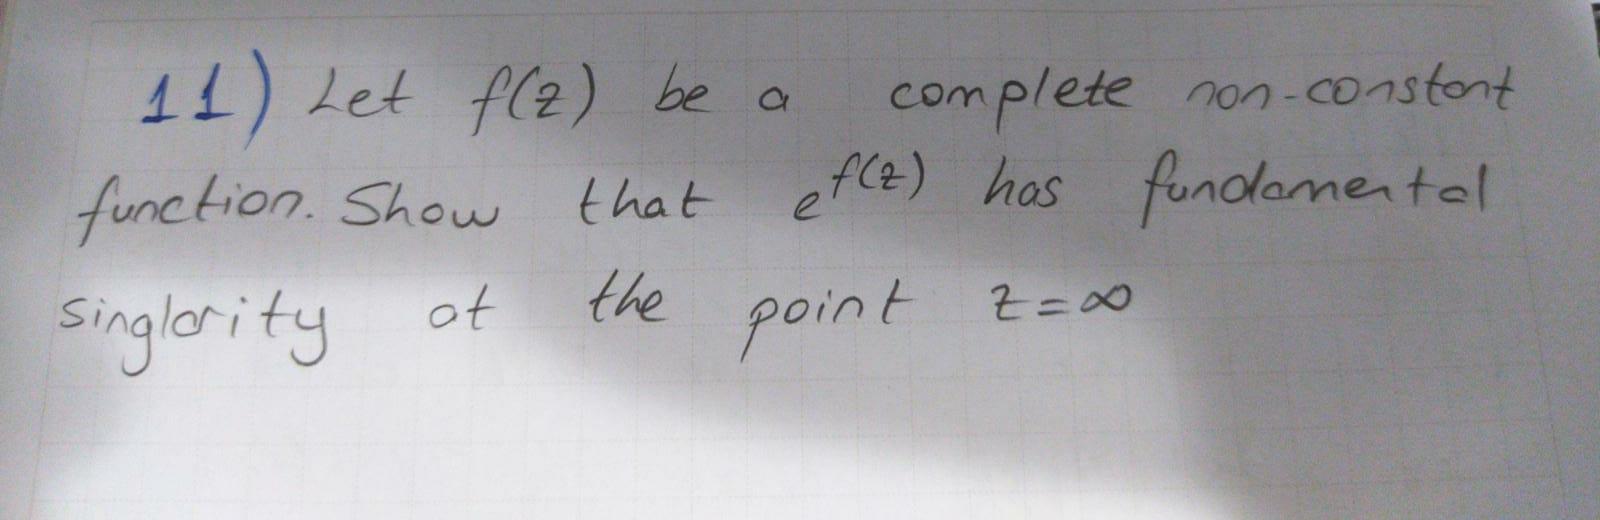 11) Let f(z) be a complete non-constant
function. Show that e^f(z) has fundamental
singlarity at the point z=∞